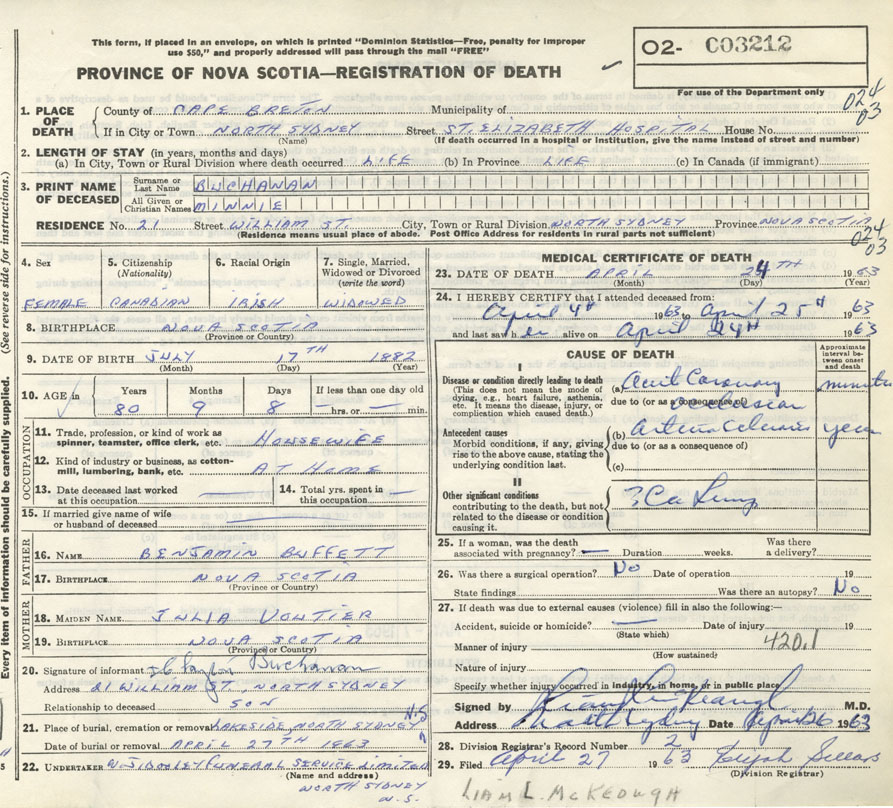 This form, if placed in an envelope, on which is printed "Dominion Statistics—Free, penalty for improper
use $50," and properly addressed will pass through the mail "FREE"
PROVINCE OF NOVA SCOTIA—REGISTRATION OF DEATH
O2- C03212
For use of the Department only
024
03
(See reverse side for instructions.)
Every item of information should be carefully supplied.
1. PLACE OF DEATH
County of CAPE BRETON Municipality of
If in City or Town NORTH SYDNEY Street ST. ELIZABETH HOSPITAL House No.
(Name) (If death occurred in a hospital or institution, give the name instead of street and number)
2. LENGTH OF STAY (in years, months and days)
(a) In City, Town or Rural Division where death occurred LIFE (b) In Province LIFE (c) In Canada (if immigrant)
3. PRINT NAME OF DECEASED
Surname or Last Name BUCHANAN
All Given or Christian Names MINNIE
RESIDENCE No. 21 Street WILLIAM ST. City, Town or Rural Division NORTH SYDNEY Province NOVA SCOTIA
(Residence means usual place of abode. Post Office Address for residents in rural parts not sufficient)
024
03
4. Sex
5. Citizenship (Nationality)
6. Racial Origin
7. Single, Married, Widowed or Divorced (write the word)
FEMALE CANADIAN IRISH WIDOWED
8. BIRTHPLACE NOVA SCOTIA
(Province or Country)
9. DATE OF BIRTH JULY 17TH 1882
(Month) (Day) (Year)
10. AGE in Years Months Days If less than one day old
80 9 8 — hrs. or — min.
OCCUPATION
11. Trade, profession, or kind of work as spinner, teamster, office clerk, etc. HOUSEWIFE
12. Kind of industry or business, as cotton-mill, lumbering, bank, etc. AT HOME
13. Date deceased last worked at this occupation —
14. Total yrs. spent in this occupation —
15. If married give name of wife or husband of deceased —
FATHER
16. NAME BENJAMIN BUFFETT
17. BIRTHPLACE NOVA SCOTIA
(Province or Country)
MOTHER
18. MAIDEN NAME JULIA VOUTIER
19. BIRTHPLACE NOVA SCOTIA
(Province or Country)
20. Signature of informant Buchanan
Address 21 WILLIAM ST., NORTH SYDNEY
Relationship to deceased SON
N.S
21. Place of burial, cremation or removal LAKESIDE, NORTH SYDNEY
Date of burial or removal APRIL 27TH 1963
22. UNDERTAKER W. J. DOOLEY FUNERAL SERVICE LIMITED
(Name and address)
NORTH SYDNEY
N.S.
MEDICAL CERTIFICATE OF DEATH
23. DATE OF DEATH APRIL 24TH 1963
(Month) (Day) (Year)
24. I HEREBY CERTIFY that I attended deceased from:
April 4th 1963 to April 25th 1963
and last saw her alive on April 24th 1963
CAUSE OF DEATH
Approximate interval between onset and death
I
Disease or condition directly leading to death
(This does not mean the mode of dying, e.g., heart failure, asthenia, etc. It means the disease, injury, or complication which caused death.)
(a) Acute Coronary minutes
due to (or as a consequence of)
occlusion
Antecedent causes
Morbid conditions, if any, giving rise to the above cause, stating the underlying condition last.
(b) Arteriosclerosis years
due to (or as a consequence of)
(c)
II
Other significant conditions
contributing to the death, but not related to the disease or condition causing it.
? Ca Lung
25. If a woman, was the death associated with pregnancy? — Duration weeks. Was there a delivery?
26. Was there a surgical operation? No Date of operation 19
State findings Was there an autopsy? No
27. If death was due to external causes (violence) fill in also the following:—
Accident, suicide or homicide? — Date of injury 19
(State which)
420.1
Manner of injury
(How sustained)
Nature of injury
Specify whether injury occurred in industry, in home, or in public place
Signed by M.D.
Address North Sydney Date April 26 1963
28. Division Registrar's Record Number 2
29. Filed April 27 1963 Elijah Sellars
(Division Registrar)
LIAM L. McKEOUGH